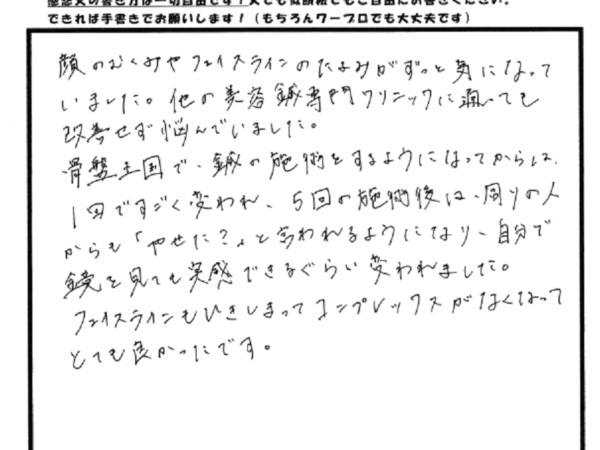 感想文の書き方は一切自由です！文でも似顔絵でもご自由にお書きください。
できれば手書きでお願いします！（もちろんワープロでも大丈夫です）
顔のむくみやフェイスラインのたるみがずっと気になって
いました。他の美容鍼専門クリニックに通っても
改善せず悩んでいました。
骨盤王国で、鍼の施術をするようになってからは、
1回ですごく変われ、5回の施術後は、周りの人
からも「やせた？」と言われるようになり、自分で
鏡を見ても実感できるぐらい変われました。
フェイスラインもひきしまってコンプレックスがなくなって
とても良かったです。